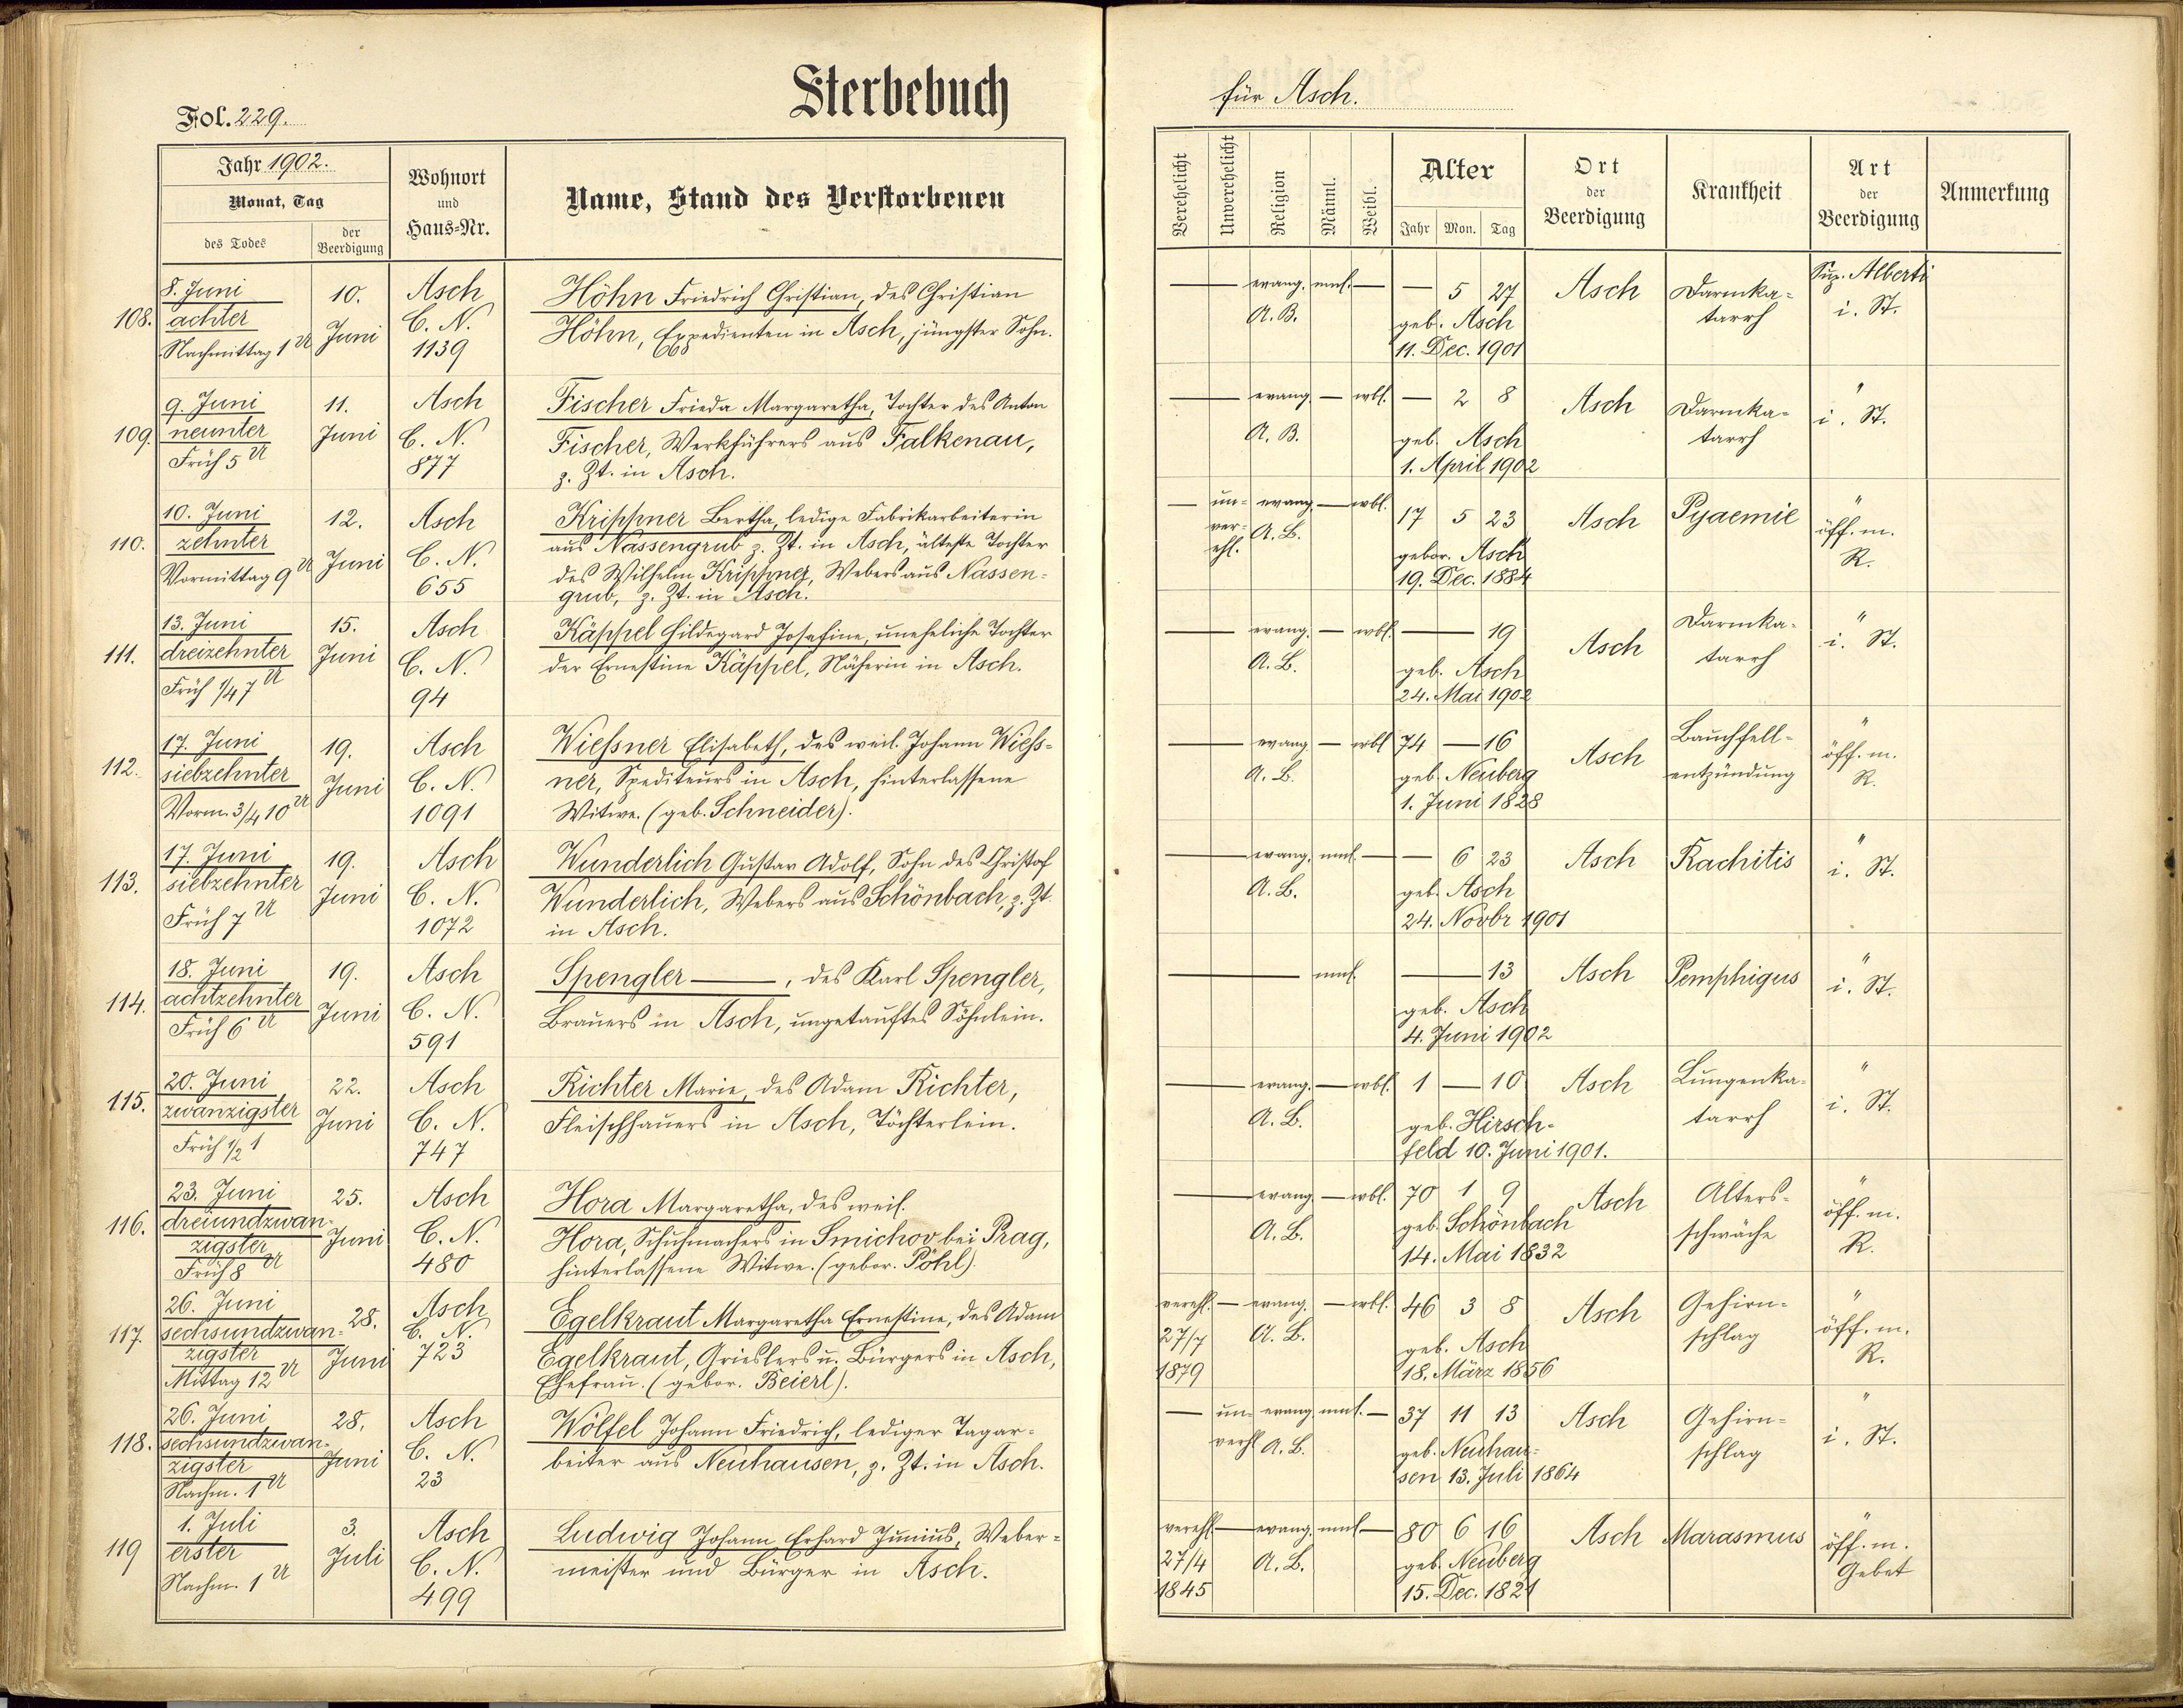 Sterbebuch
Fol. 229.
Jahr 1902.
Monat, Tag
des Todes
der Beerdigung
Wohnort
und
Haus=Nr.
Name, Stand des Verstorbenen
für Asch.
Verehelicht
Unverehelicht
Religion
Männl.
Weibl.
Alter
Jahr Mon. Tag
Ort
der
Beerdigung
Krankheit
Art
der
Beerdigung
Anmerkung
108.
8. Juni
achter
Nachmittag 1 U
10.
Juni
Asch
C. N.
1139
Höhn Friedrich Christian, des Christian
Höhn, Expedienten in Asch, jüngster Sohn.
— evang. mnl. — — 5 27
A. B.
geb. Asch
11. Dec. 1901
Asch
Darmka=
tarrh
Sup. Alberti
i. St.
109.
9. Juni
neunter
Früh 5 U
11.
Juni
Asch
C. N.
877
Fischer Frieda Margaretha, Tochter des Anton
Fischer, Werkführers aus Falkenau,
z. Zt. in Asch.
— evang. — wbl. — 2 8
A. B.
geb. Asch
1. April 1902
Asch
Darmka=
tarrh
"
i. St.
110.
10. Juni
zehnter
Vormittag 9 U
12.
Juni
Asch
C. N.
655
Krippner Bertha, ledige Fabrikarbeiterin
aus Nassengrub z. Zt. in Asch, älteste Tochter
des Wilhelm Krippner, Webers aus Nassen=
grub, z. Zt. in Asch.
— un= evang. — wbl. 17 5 23
ver= A. B.
ehl.
gebor. Asch
19. Dec. 1884
Asch
Pyaemie
"
öff. m.
R.
111.
13. Juni
dreizehnter
Früh 1/4 7 U
15.
Juni
Asch
C. N.
94
Käppel Hildegard Josefine, uneheliche Tochter
der Ernestine Käppel, Näherin in Asch.
— evang. — wbl. — 19
A. B.
geb. Asch
24. Mai 1902
Asch
Darmka=
tarrh
"
i. St.
112.
17. Juni
siebzehnter
Vorm. 3/4 10 U
19.
Juni
Asch
C. N.
1091
Wiessner Elisabeth, des weil. Johann Wiess=
ner, Spediteurs in Asch, hinterlassene
Witwe. (geb. Schneider).
— evang. — wbl. 74 — 16
A. B.
geb. Neuberg
1. Juni 1828
Asch
Bauchfell=
entzündung
"
öff. m.
R.
113.
17. Juni
siebzehnter
Früh 7 U
19.
Juni
Asch
C. N.
1072
Wunderlich Gustav Adolf, Sohn des Christof
Wunderlich, Webers aus Schönbach, z. Zt.
in Asch.
— evang. mnl. — — 6 23
A. B.
geb. Asch
24. Novbr 1901
Asch
Rachitis
"
i. St.
114.
18. Juni
achtzehnter
Früh 6 U
19.
Juni
Asch
C. N.
591
Spengler —, des Karl Spengler,
Brauers in Asch, ungetauftes Söhnlein.
— mnl. — 13
geb. Asch
4. Juni 1902
Asch
Pemphigus
"
i. St.
115.
20. Juni
zwanzigster
Früh 1/2 1
22.
Juni
Asch
C. N.
747
Richter Marie, des Adam Richter,
Fleischhauers in Asch, Töchterlein.
— evang. — wbl. 1 — 10
A. B.
geb. Hirsch=
feld 10. Juni 1901.
Asch
Lungenka=
tarrh
"
i. St.
116.
23. Juni
dreiundzwan=
zigster
Früh 8 U
25.
Juni
Asch
C. N.
480
Hora Margaretha, des weil.
Hora, Schuhmachers in Smichov bei Prag,
hinterlassene Witwe. (gebor. Pöhl).
— evang. — wbl. 70 1 9
A. B.
geb. Schönbach
14. Mai 1832
Asch
Alters=
schwäche
"
öff. m.
R.
117.
26. Juni
sechsundzwan=
zigster
Mittag 12 U
28.
Juni
Asch
C. N.
723
Egelkraut Margaretha Ernestine, des Adam
Egelkraut, Grieslers u. Bürgers in Asch,
Ehefrau. (gebor. Beierl).
verehl. — evang. — wbl. 46 3 8
27/7 A. B.
1879
geb. Asch
18. März 1856
Asch
Gehirn=
schlag
"
öff. m.
R.
118.
26. Juni
sechsundzwan=
zigster
Nachm. 1 U
28.
Juni
Asch
C. N.
23
Wölfel Johann Friedrich, lediger Tagar=
beiter aus Neuhausen, z. Zt. in Asch.
— un= evang. mnl. — 37 11 13
verhl A. B.
geb. Neuhau=
sen 13. Juli 1864
Asch
Gehirn=
schlag
"
i. St.
119
1. Juli
erster
Nachm. 1 U
3.
Juli
Asch
C. N.
499
Ludwig Johann Erhard Junius, Weber=
meister und Bürger in Asch.
verehl — evang. mnl — 80 6 16
27/4 A. B.
1845
geb. Neuberg
15. Dec. 1821
Asch
Marasmus
"
öff. m.
Gebet